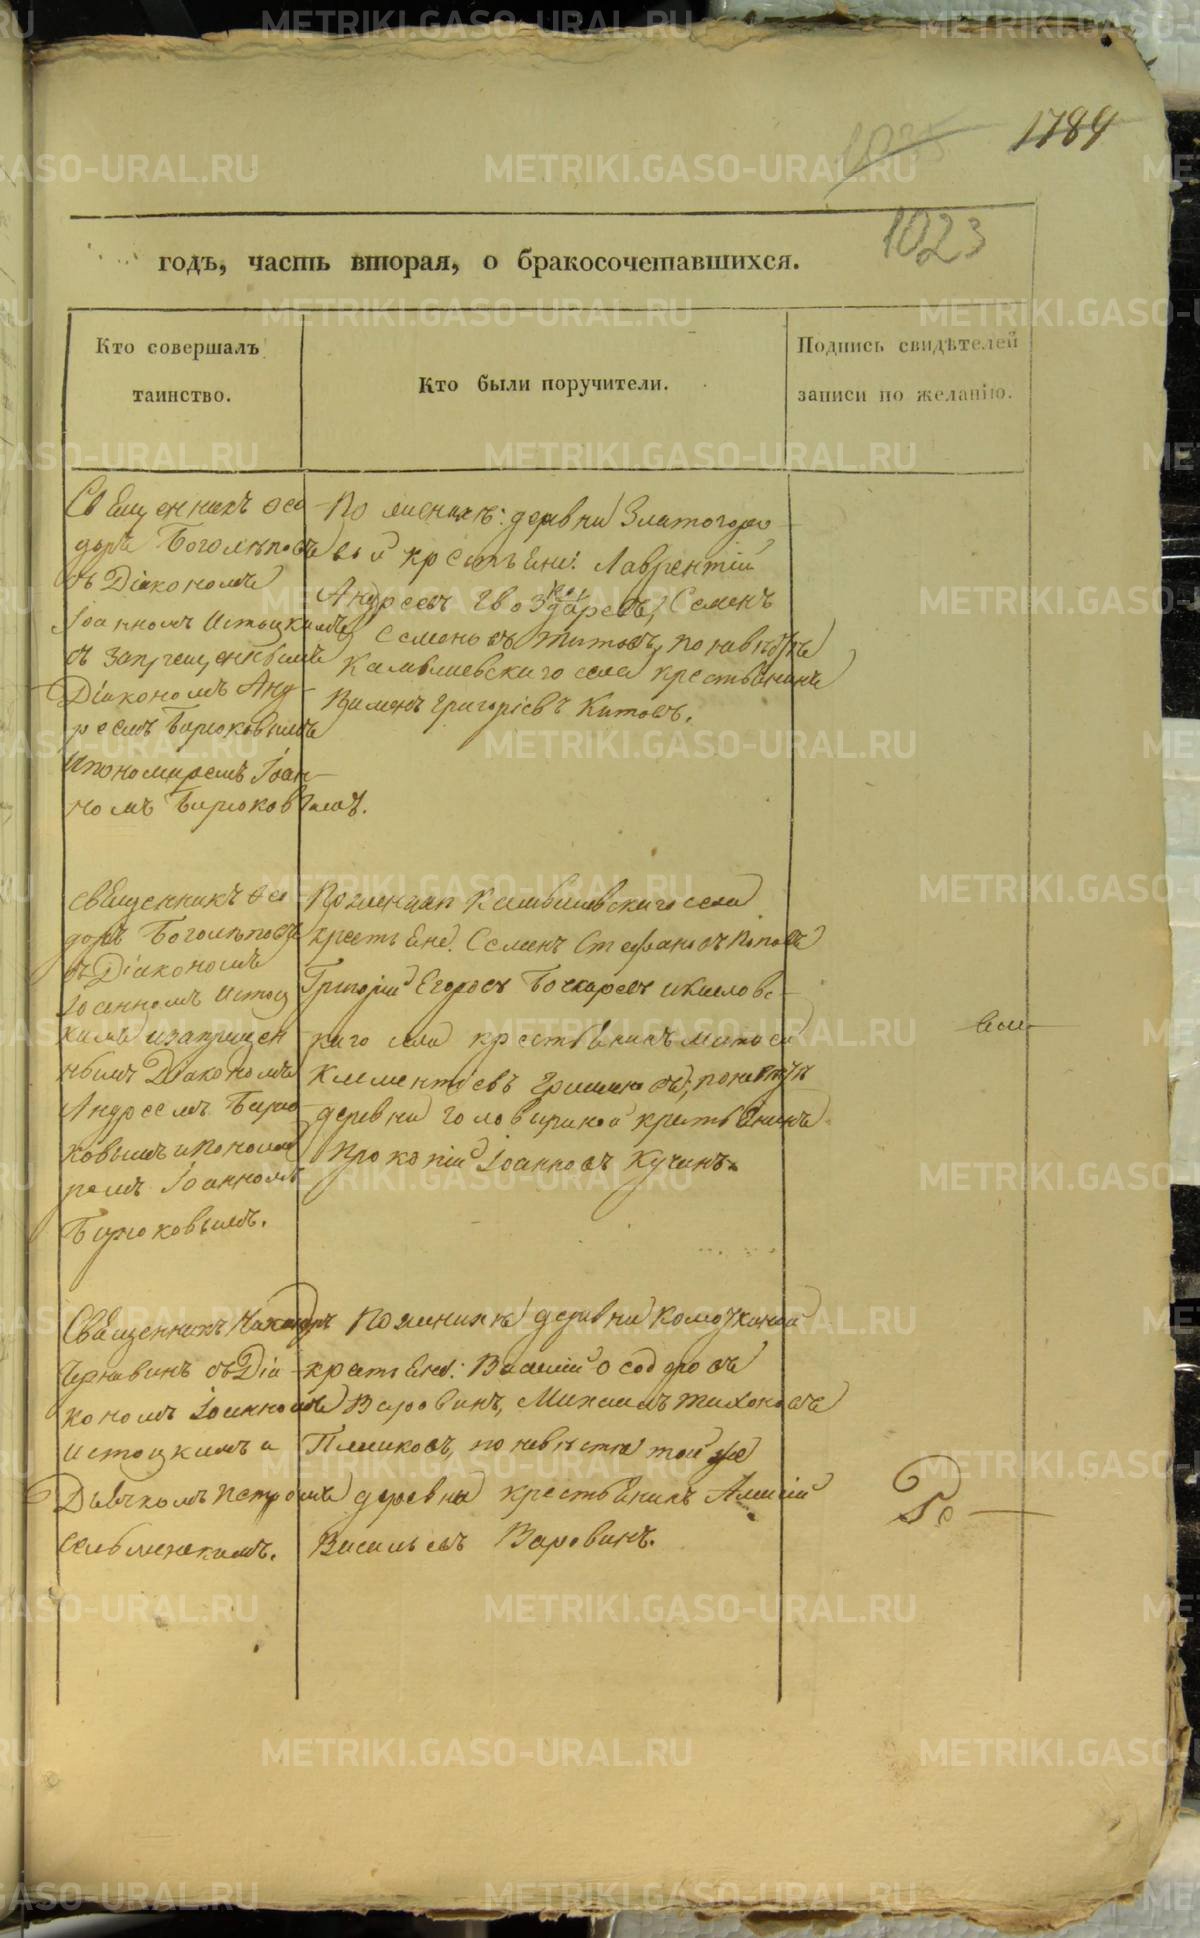 1784
1035
1023
годъ, часть вторая, о бракосочетавшихся.
Кто совершалъ
таинство.
Кто были поручители.
Подпись свидѣтелей
записи по желанію.
Священникъ Ѳео
доръ Боголѣповъ
съ Діакономъ
Іоанномъ Истоцкимъ
съ запрещеннымъ
Діакономъ Анд
реемъ Бирюковымъ
и пономаремъ Іоан
номъ Бирюковымъ.
По женихѣ: деревни Златогоро
вой крестьяне: Лаврентій
Андреевъ Гвоздаревъ, Семенъ
Семеновъ Титовъ, по невѣстѣ
Камышевскаго села крестьянинъ
Григоріевъ Китовъ.
Священникъ Ѳео
доръ Боголѣповъ
съ Діакономъ
Іоанномъ Истоц
кимъ и запрещен
нымъ Діакономъ
Андреемъ Бирю
ковымъ и Понома
ремъ Іоанномъ
Бирюковымъ.
По женихѣ Камышевскаго села
крестьяне: Семенъ Стефановъ Поповъ
Григорій Егоровъ Бочкаревъ и Кисловс
каго села крестьянинъ
Климентіевъ по невѣстѣ
деревни Головыриной крестьянинъ
Прокопій Іоанновъ Кучинъ.
Священникъ Никандръ
Чернавинъ съ Діа
кономъ Іоанномъ
Истоцкимъ и
Дьячкомъ Петромъ
Сельменскимъ.
По женихѣ деревни Комочкиной
крестьяне: Василій Ѳеодоровъ
Варовинъ, Михаилъ Тихоновъ
по невѣстѣ той же
деревни крестьянинъ Алексій
Васильевъ Варовинъ.
METRIKI.GASO-URAL.RU